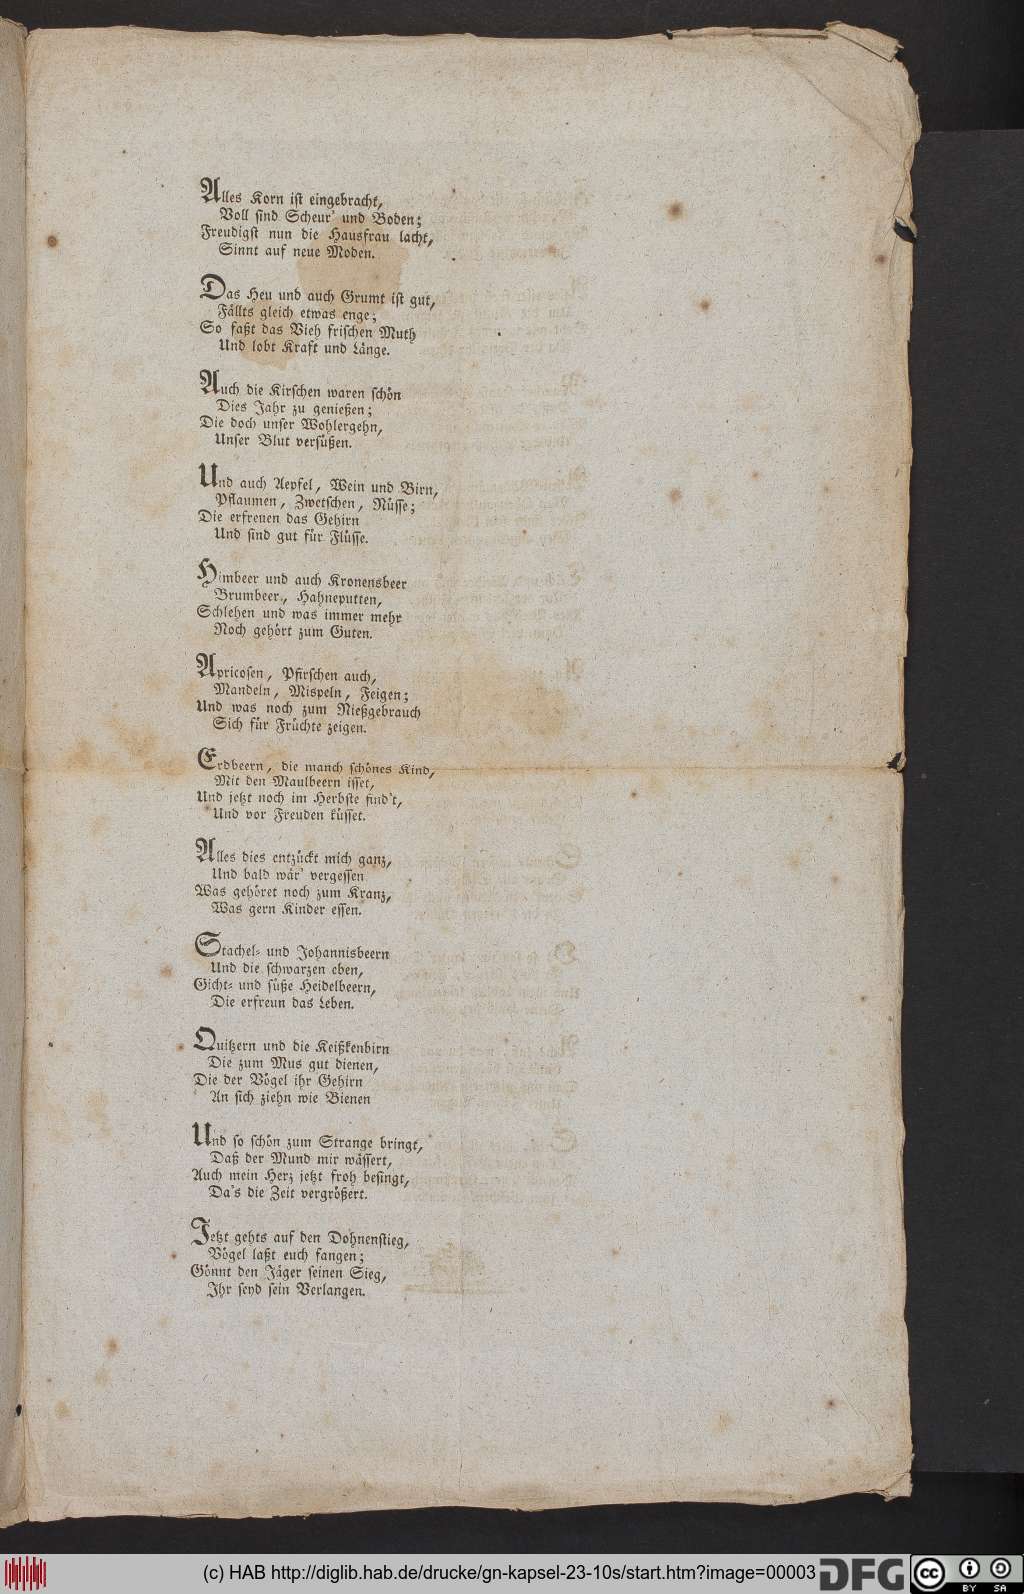 Alles Korn ist eingebracht,
Voll sind Scheur' und Boden;
Freudigst nun die Hausfrau lacht,
Sinnt auf neue Moden.
Das Heu und auch Grumt ist gut,
Fällts gleich etwas enge;
So faßt das Vieh frischen Muth
Und lobt Kraft und Länge.
Auch die Kirschen waren schön
Dies Jahr zu genießen;
Die doch unser Wohlergehn,
Unser Blut versüßen.
Und auch Aepfel, Wein und Birn,
Pflaumen, Zwetschen, Nüsse;
Die erfreuen das Gehirn
Und sind gut für Flüsse.
Himbeer und auch Kronensbeer
Brumbeer, Hahneputten,
Schlehen und was immer mehr
Noch gehört zum Guten.
Apricosen, Pfirschen auch,
Mandeln, Mispeln, Feigen;
Und was noch zum Nießgebrauch
Sich für Früchte zeigen.
Erdbeern, die manch schönes Kind,
Mit den Maulbeern isset,
Und jetzt noch im Herbste find't,
Und vor Freuden küsset.
Alles dies entzückt mich ganz,
Und bald wär' vergessen
Was gehöret noch zum Kranz,
Was gern Kinder essen.
Stachel- und Johannisbeern
Und die schwarzen eben,
Gicht- und süße Heidelbeern,
Die erfreun das Leben.
Quitzern und die Keißkenbirn
Die zum Mus gut dienen,
Die der Vögel ihr Gehirn
An sich ziehn wie Bienen
Und so schön zum Strange bringt,
Daß der Mund mir wässert,
Auch mein Herz jetzt froh besingt,
Da's die Zeit vergrößert.
Jetzt gehts auf den Dohnenstieg,
Vögel laßt euch fangen;
Gönnt den Jäger seinen Sieg,
Ihr seyd sein Verlangen.
(c) HAB http://diglib.hab.de/drucke/gn-kapsel-23-10s/start.htm?image=00003
DFG
cc
BY SA